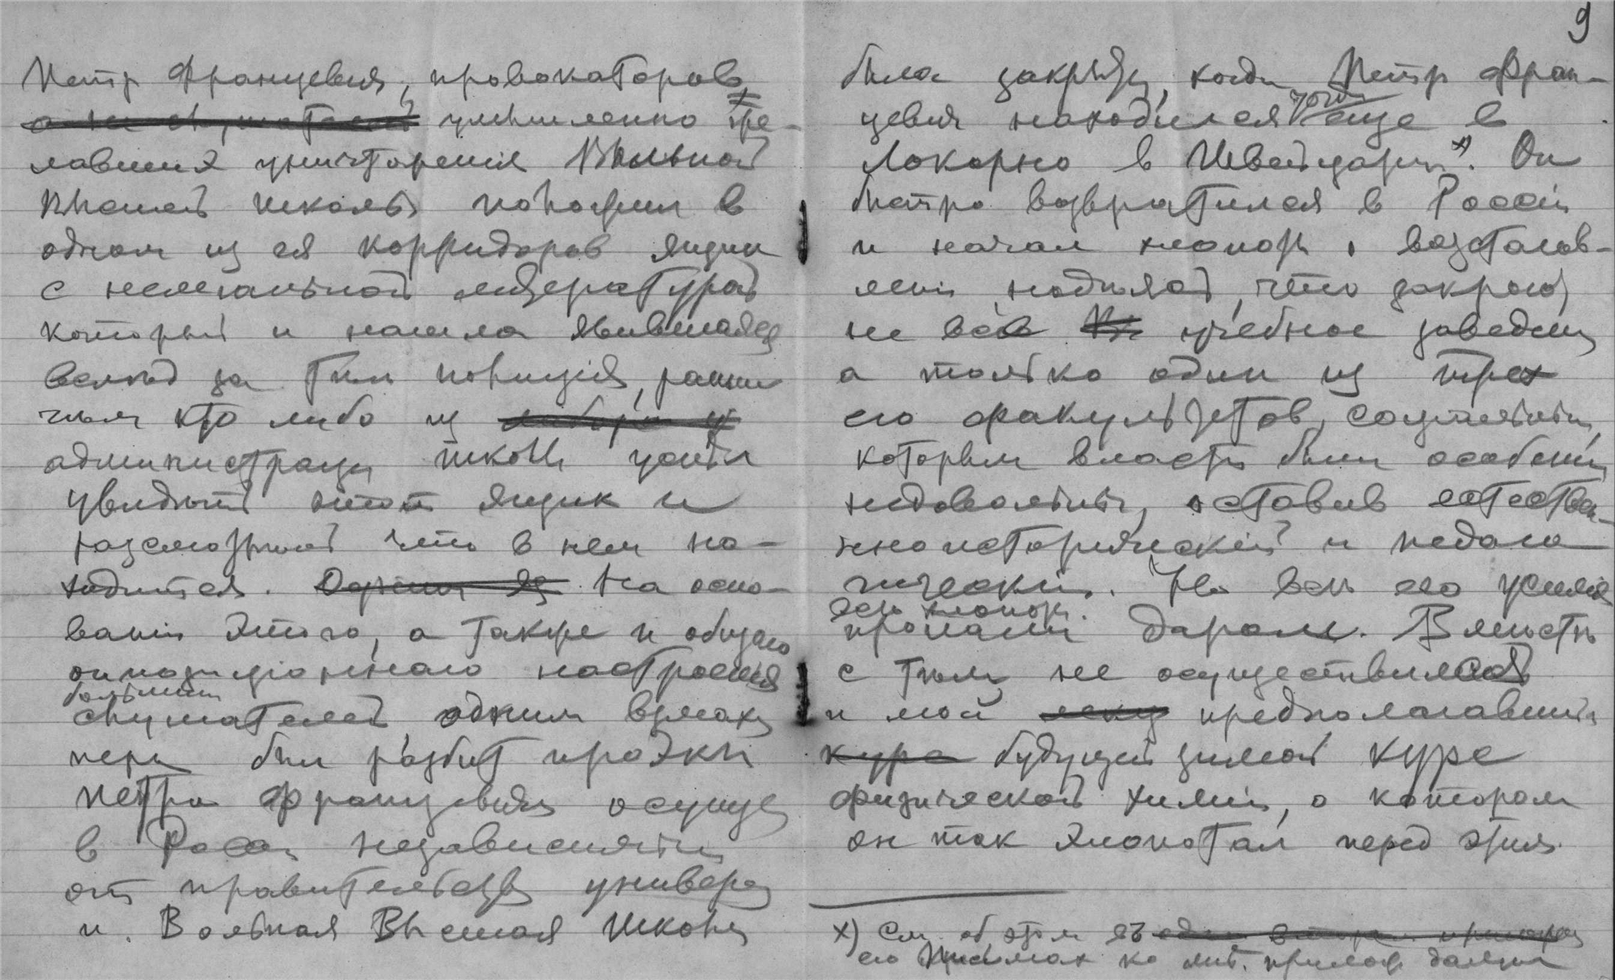 Петр Францевич, провокаторов,
умышленно же-
лавших уничтожения Вольной
Высшей школы положили в
одном из ея корридоров ящик
с нелегальной литературой
который и нашла явившаяся
вслед за тем полиция, раньше
чем кто либо из
администрации школы успел
увидеть этот ящик и
рассмотреть что в нем на-
ходится. На осно-
вании этого, а также и общаго
оппозиционнаго настроения
слушателей одним взмахом
пера был разбит проэкт
Петра Францевича осущ
в России независимый
от правительства универс
и. Вольная Высшая Школа
9
была закрыта, когда Петр Фран-
цевич находился еще в
Локарно в Швейцарии x). Он
быстро возвратился в Россию
и начал хлопоты о возстанов-
лении надеясь, что закроют
не все учебное заведение
а только один из трех
его факультетов, социальный,
которым власти были особенно
недовольны, оставив естествен-
ноисторический и педаго-
гический. Но все его усилия
хлопоты
пропали даром. Вместе
с тем не осуществился
и мой предполагавшийся
будущей зимой курс
физической химии, о котором
он так хлопотал перед этим.
x) См. об этом
его письмах ко мне. далее